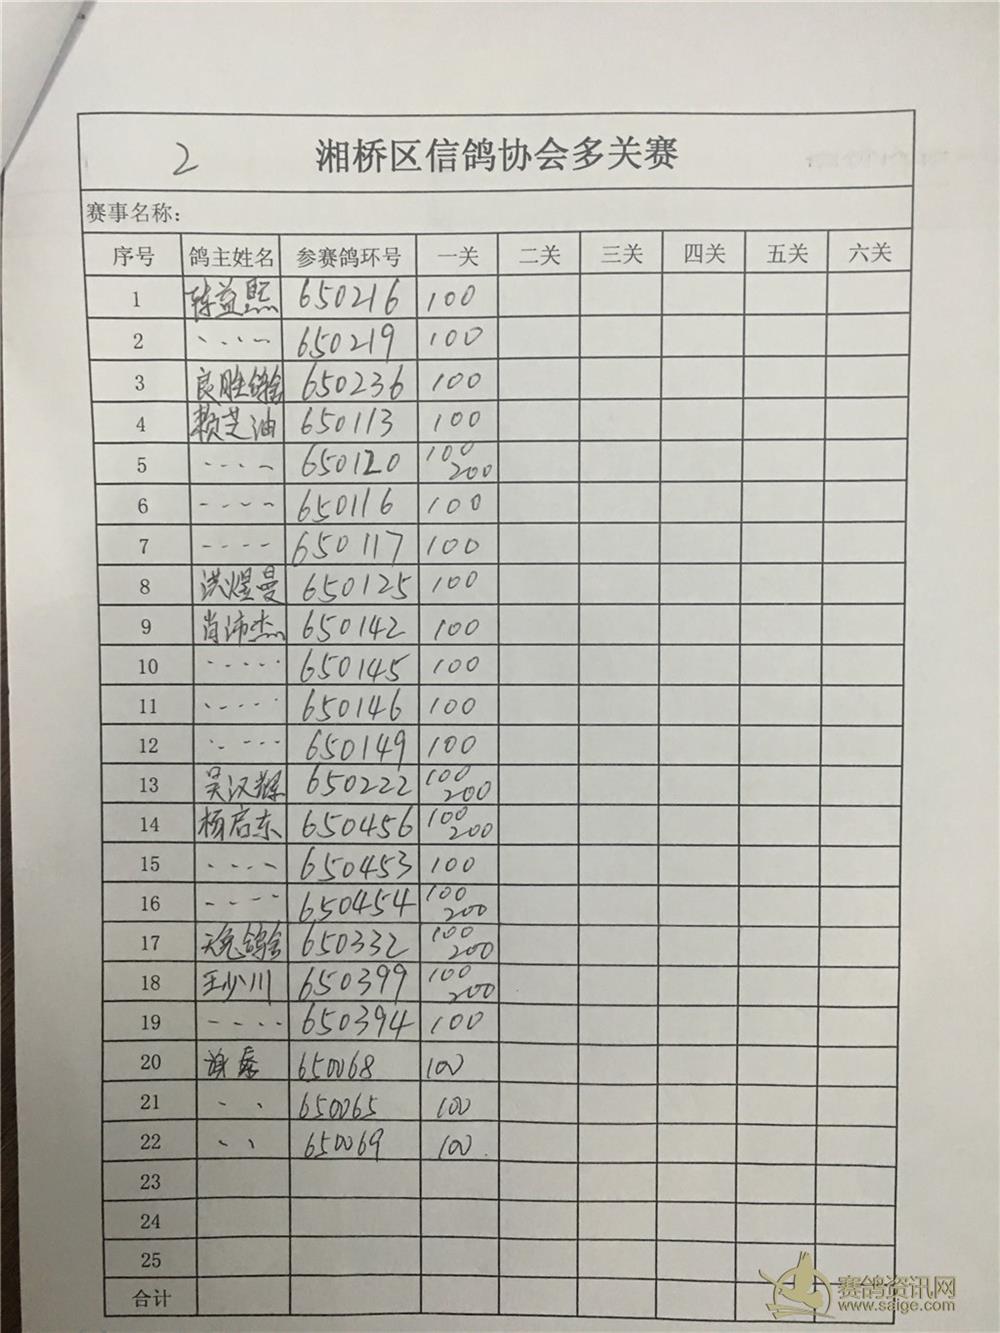 2 湘桥区信鸽协会多关赛
赛事名称:
序号 鸽主姓名 参赛鸽环号 一关 二关 三关 四关 五关 六关
1 陈益熙 650216 100
2 、、、、 650219 100
3 良胜鸽舍 650236 100
4 赖芝油 650113 100
5 、、、、 650120 100 200
6 、、、、 650116 100
7 、、、、 650117 100
8 洪煜曼 650125 100
9 肖沛杰 650142 100
10 、、、、、 650145 100
11 、、、、、 650146 100
12 、、、、、 650149 100
13 吴汉辉 650222 100 200
14 杨启东 650456 100 200
15 、、、、 650453 100
16 、、、、 650454 100 200
17 天逸鸽舍 650332 100 200
18 王少川 650399 100 200
19 、、、、 650394 100
20 650068 100
21 、、 650065 100
22 、、 650069 100
23
24
25
合计
赛鸽资讯网
www.saige.com